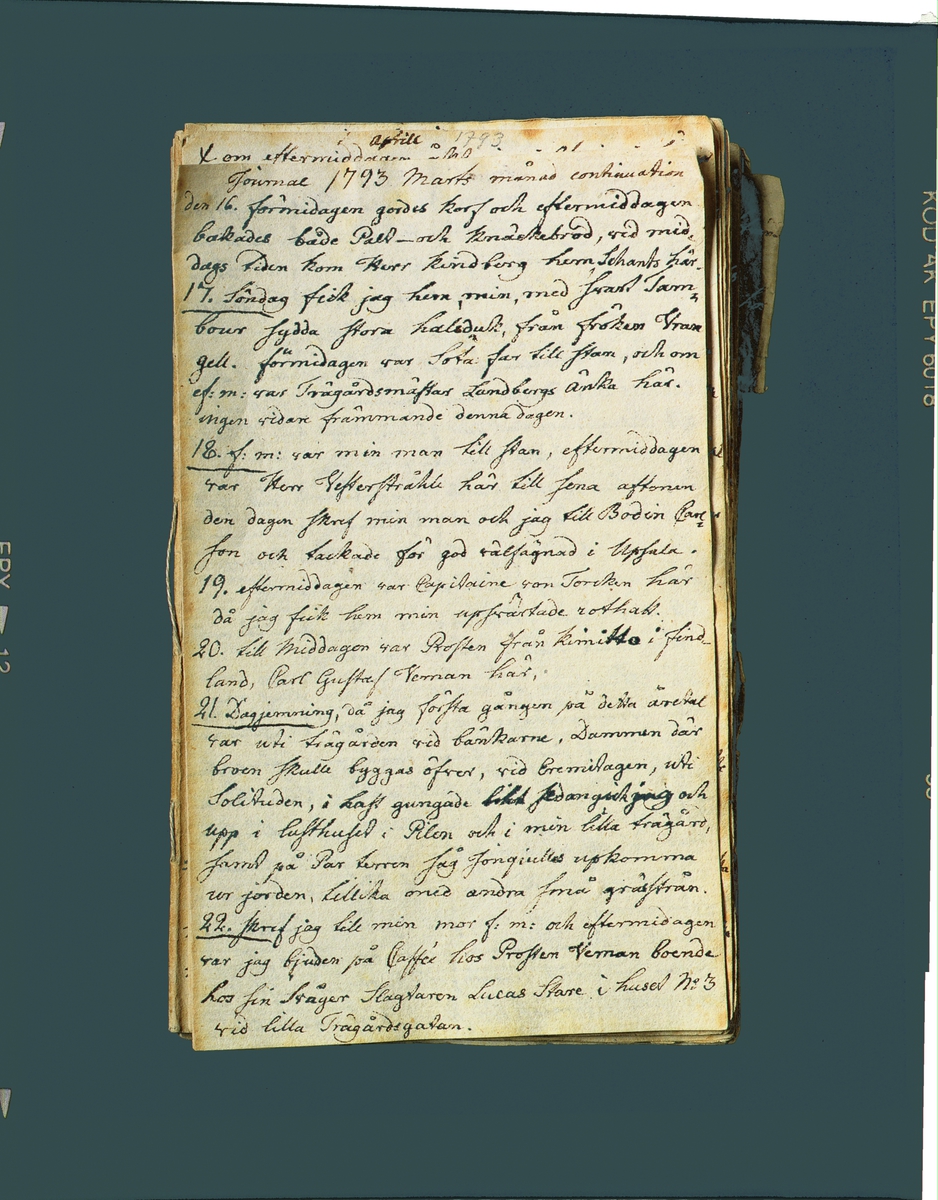 aprill 1793
X om eftermiddagen
Journal 1793 Marts månad continuation
den 16. förmidagen gordes Korf och eftermiddagen
bakades både Palt- och Knäckebröd, vid mid-
dags tiden kom Herr Kindberg hem, Schants här.
17. Söndag fick jag hem, min, med svart Tam-
bour sydda stora halsduk, från fröken Vran
gell. förmidagen var Lota far till stan, och om
ef: m: var Trägårdsmästar Lundbergs Änka här.
ingen vidare främmande denna dagen.
18. f: m: var min man till stan, eftermiddagen
var Herr Vesterstråhle här till sena aftonen
den dagen skref min man och jag till Bodin Carl-
son och tackade för god välfägnad i Upsala.
19. eftermiddagen var Capitaine von Torcken här
då jag fick hem min upsvärtade rothatt.
20. till Middagen var Prosten från Kimitto i find-
land, Carl Gustaf Veman här,
21. Dagjemning, då jag första gången på detta åretal
var uti trägården vid bänkarne, Dammen där
broen skulle byggas öfver, vid Eremitagen, uti
Solituden, i hast gungade sedan gick jag och
upp i lusthuset i Pilen och i min lilla trägård,
samt på Par terren såg Jonquilles upkomma
ur jorden, tillika med andra små grässtrån.
22. skref jag till min mor f: m: och eftermidagen
var jag bjuden på Caffé hos Prosten Veman boende
hos sin Svåger Slagtaren Lucas Stare i huset No 3
vid lilla Trägårdsgatan.
KODAK EPY 6018
EPY
12